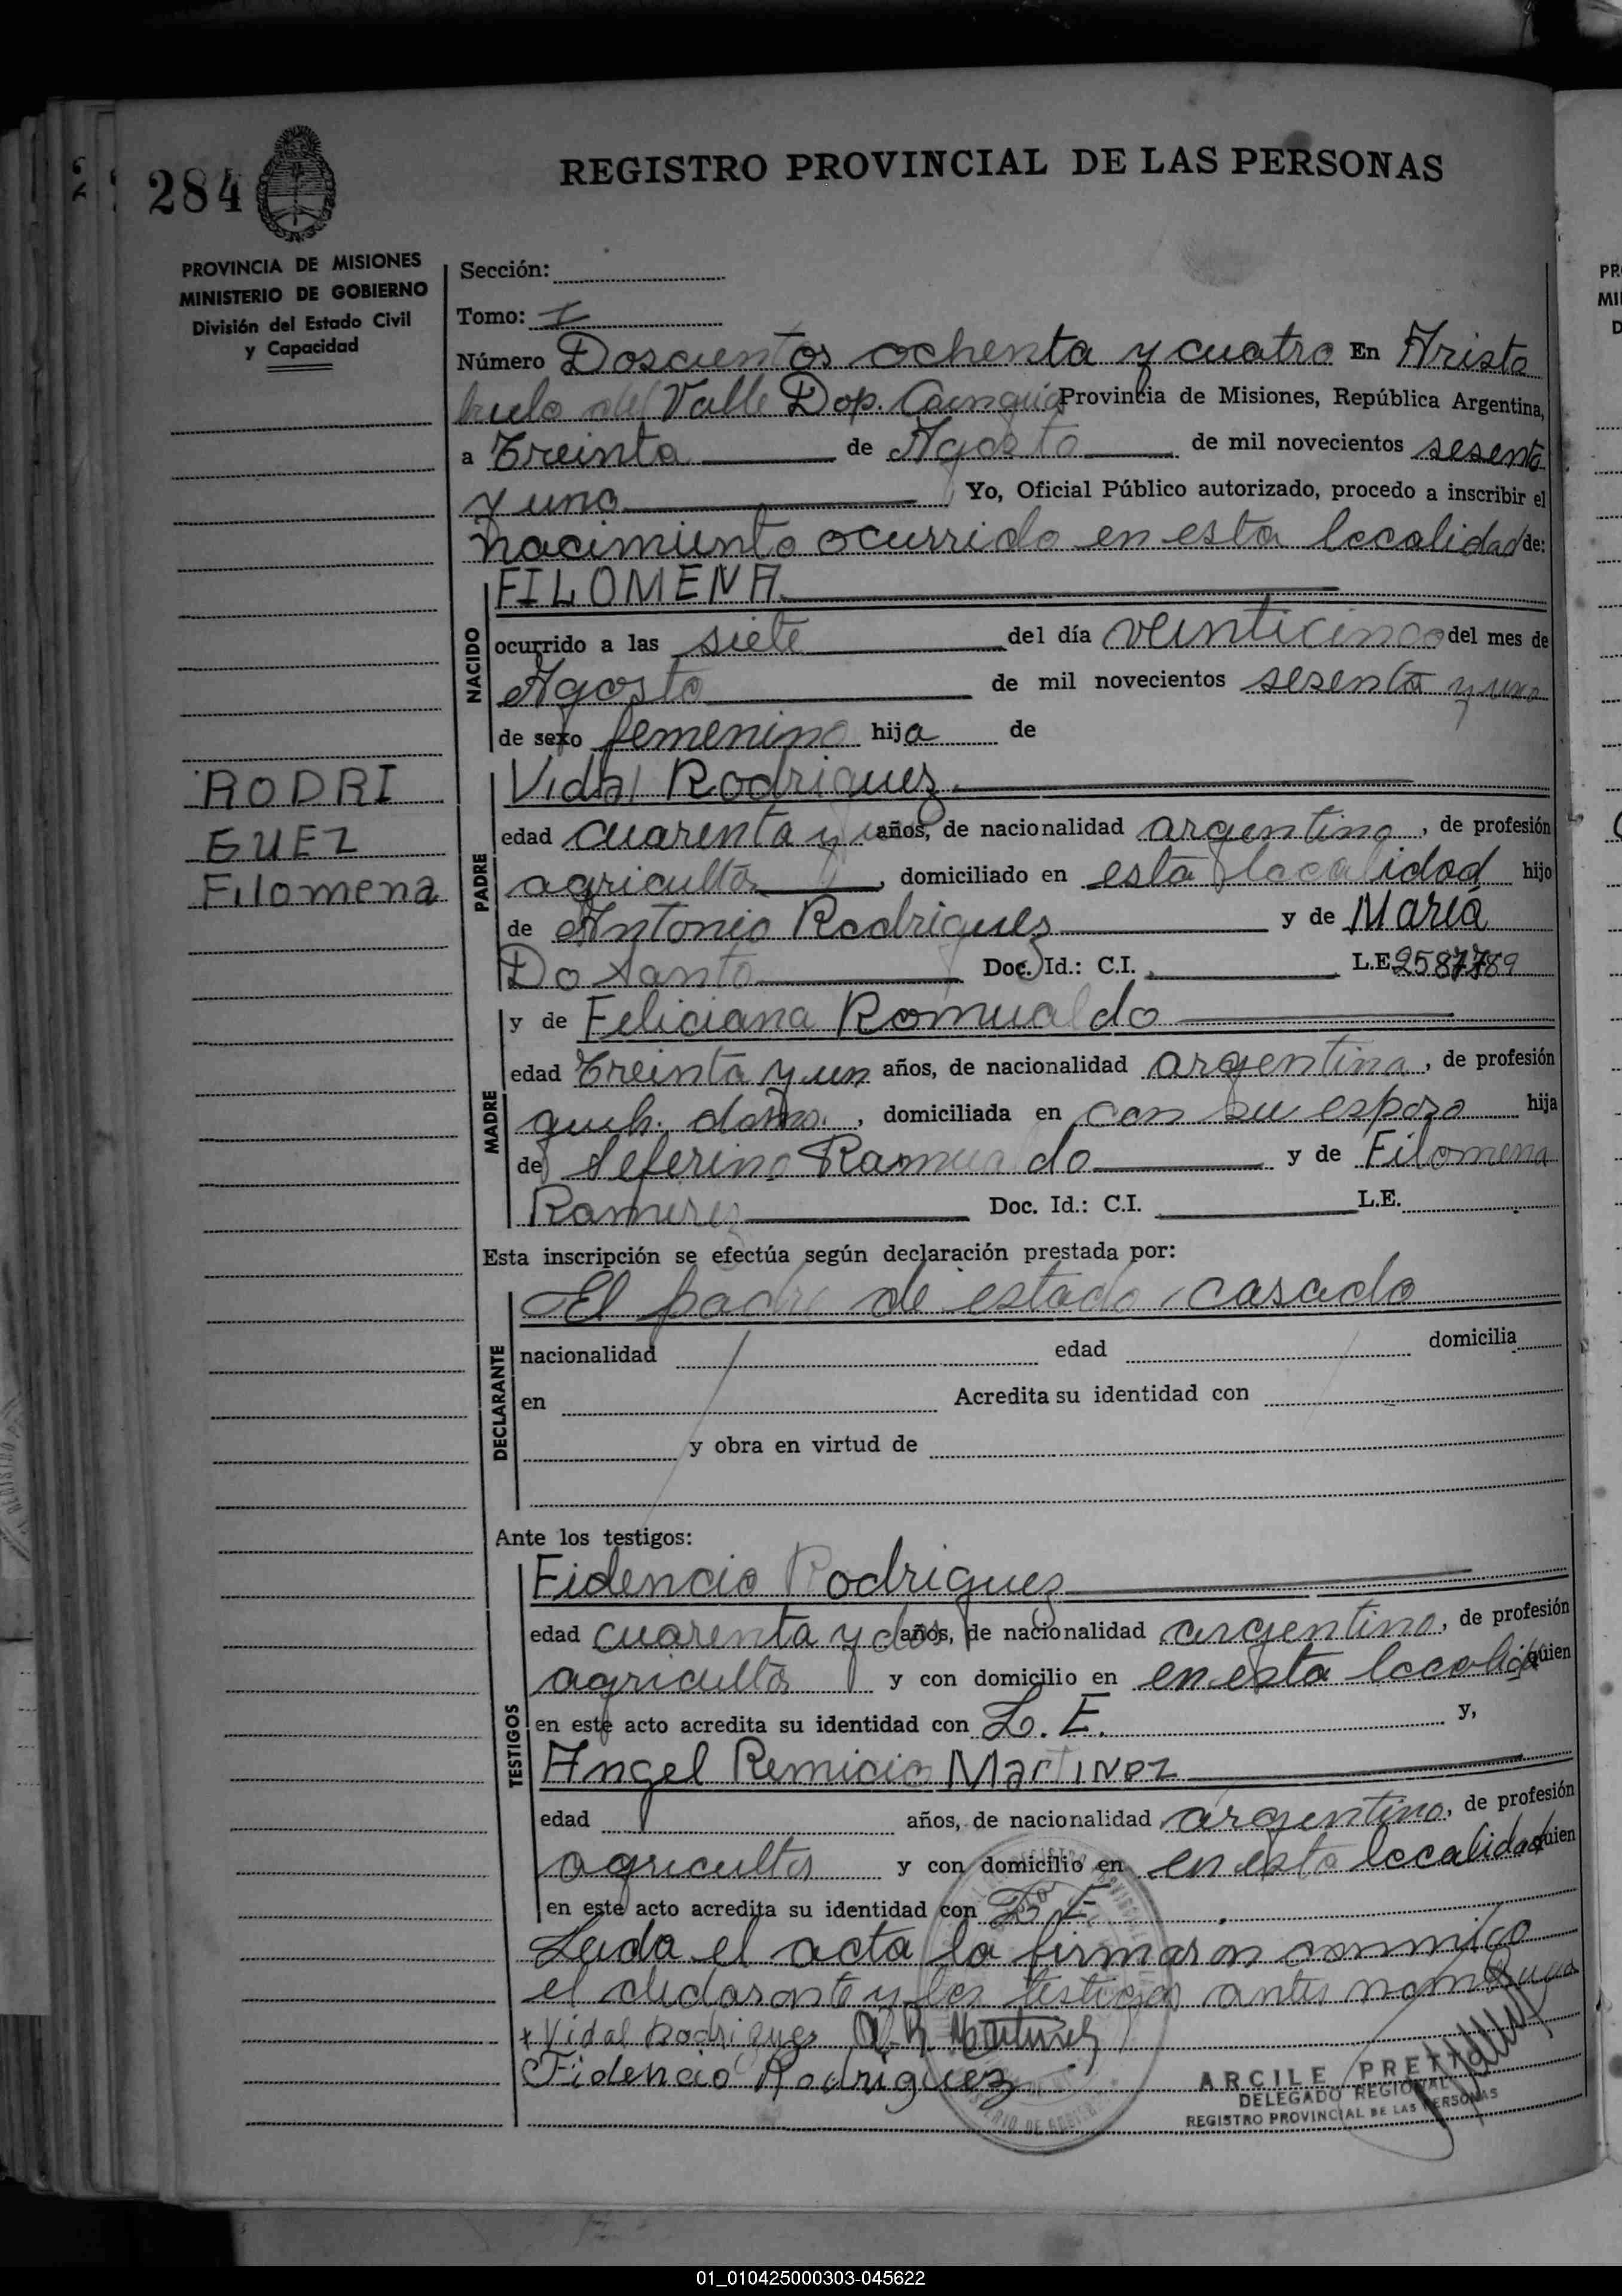 284
REGISTRO PROVINCIAL DE LAS PERSONAS
PROVINCIA DE MISIONES
MINISTERIO DE GOBIERNO
División del Estado Civil
y Capacidad
RODRI
GUEZ
Filomena
Sección:
Tomo: I
Número Doscientos ochenta y cuatro En Aristo
bulo del Valle Dop. Cainguás Provincia de Misiones, República Argentina,
a Treinta de Agosto de mil novecientos sesenta
y uno Yo, Oficial Público autorizado, procedo a inscribir el
nacimiento ocurrido en esta localidad de:
NACIDO
FILOMENA
ocurrido a las siete del día veinticinco del mes de
Agosto de mil novecientos sesenta y uno
de sexo femenino hija de
PADRE
Vidal Rodriguez.
edad cuarenta y años, de nacionalidad argentino, de profesión
agricultor, domiciliado en esta localidad hijo
de Antonio Rodrigues y de Maria
Do Santo Doc. Id.: C.I. L.E.
MADRE
y de Feliciana Romualdo
edad Treinta y un años, de nacionalidad argentina, de profesión
queh. doms., domiciliada en con su esposo hija
de Seferino Ramualdo y de Filomena
Ramirez Doc. Id.: C.I. L.E.
Esta inscripción se efectúa según declaración prestada por:
DECLARANTE
El padre de estado casado
nacionalidad edad domicilia
en Acredita su identidad con
y obra en virtud de
Ante los testigos:
TESTIGOS
Fidencio Rodriguez
edad cuarenta y dos años, de nacionalidad argentino, de profesión
agricultor y con domicilio en en esta localidad quien
en este acto acredita su identidad con L. E. y,
Angel Remicio Martinez
edad años, de nacionalidad argentino, de profesión
agricultor y con domicilio en en esta localidad quien
en este acto acredita su identidad con L. E.
Leida el acta la firmaron conmigo
el declarante y los testigos antes nombrados
x Vidal Rodriguez A. R. Martinez
Fidencio Rodriguez
ARCILE PRETTO
DELEGADO REGIONAL
REGISTRO PROVINCIAL DE LAS PERSONAS
01_010425000303-045622